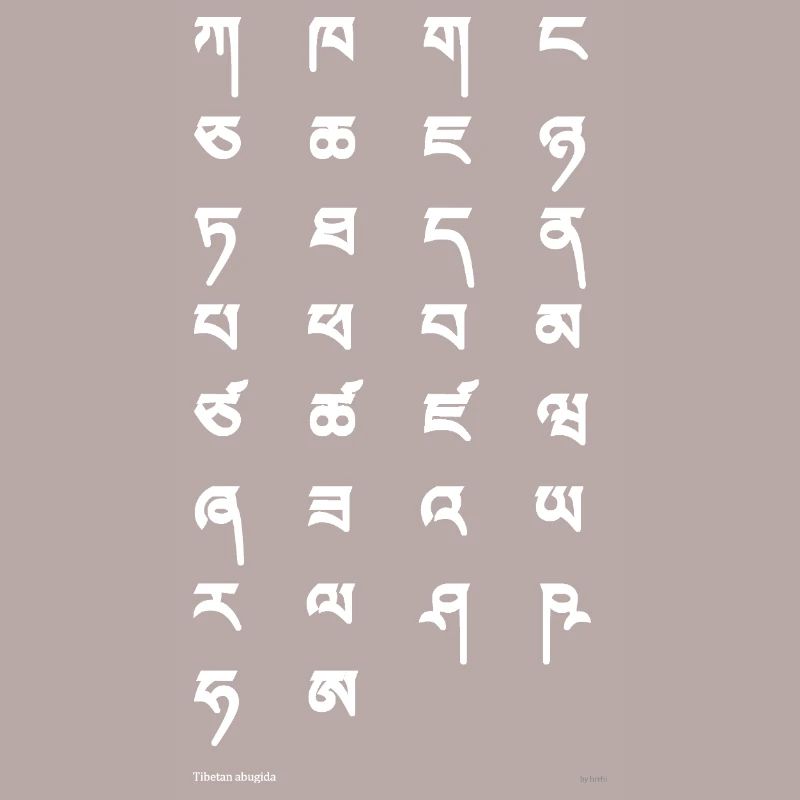 ཀ ཁ ག ང
ཅ ཆ ཇ ཉ
ཏ ཐ ད ན
པ ཕ བ མ
ཙ ཚ ཛ ཝ
ཞ ཟ འ ཡ
ར ལ ཤ ཥ
ཧ ཨ
Tibetan abugida
by